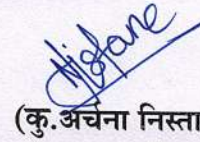 (कु.अर्चना निस्ता